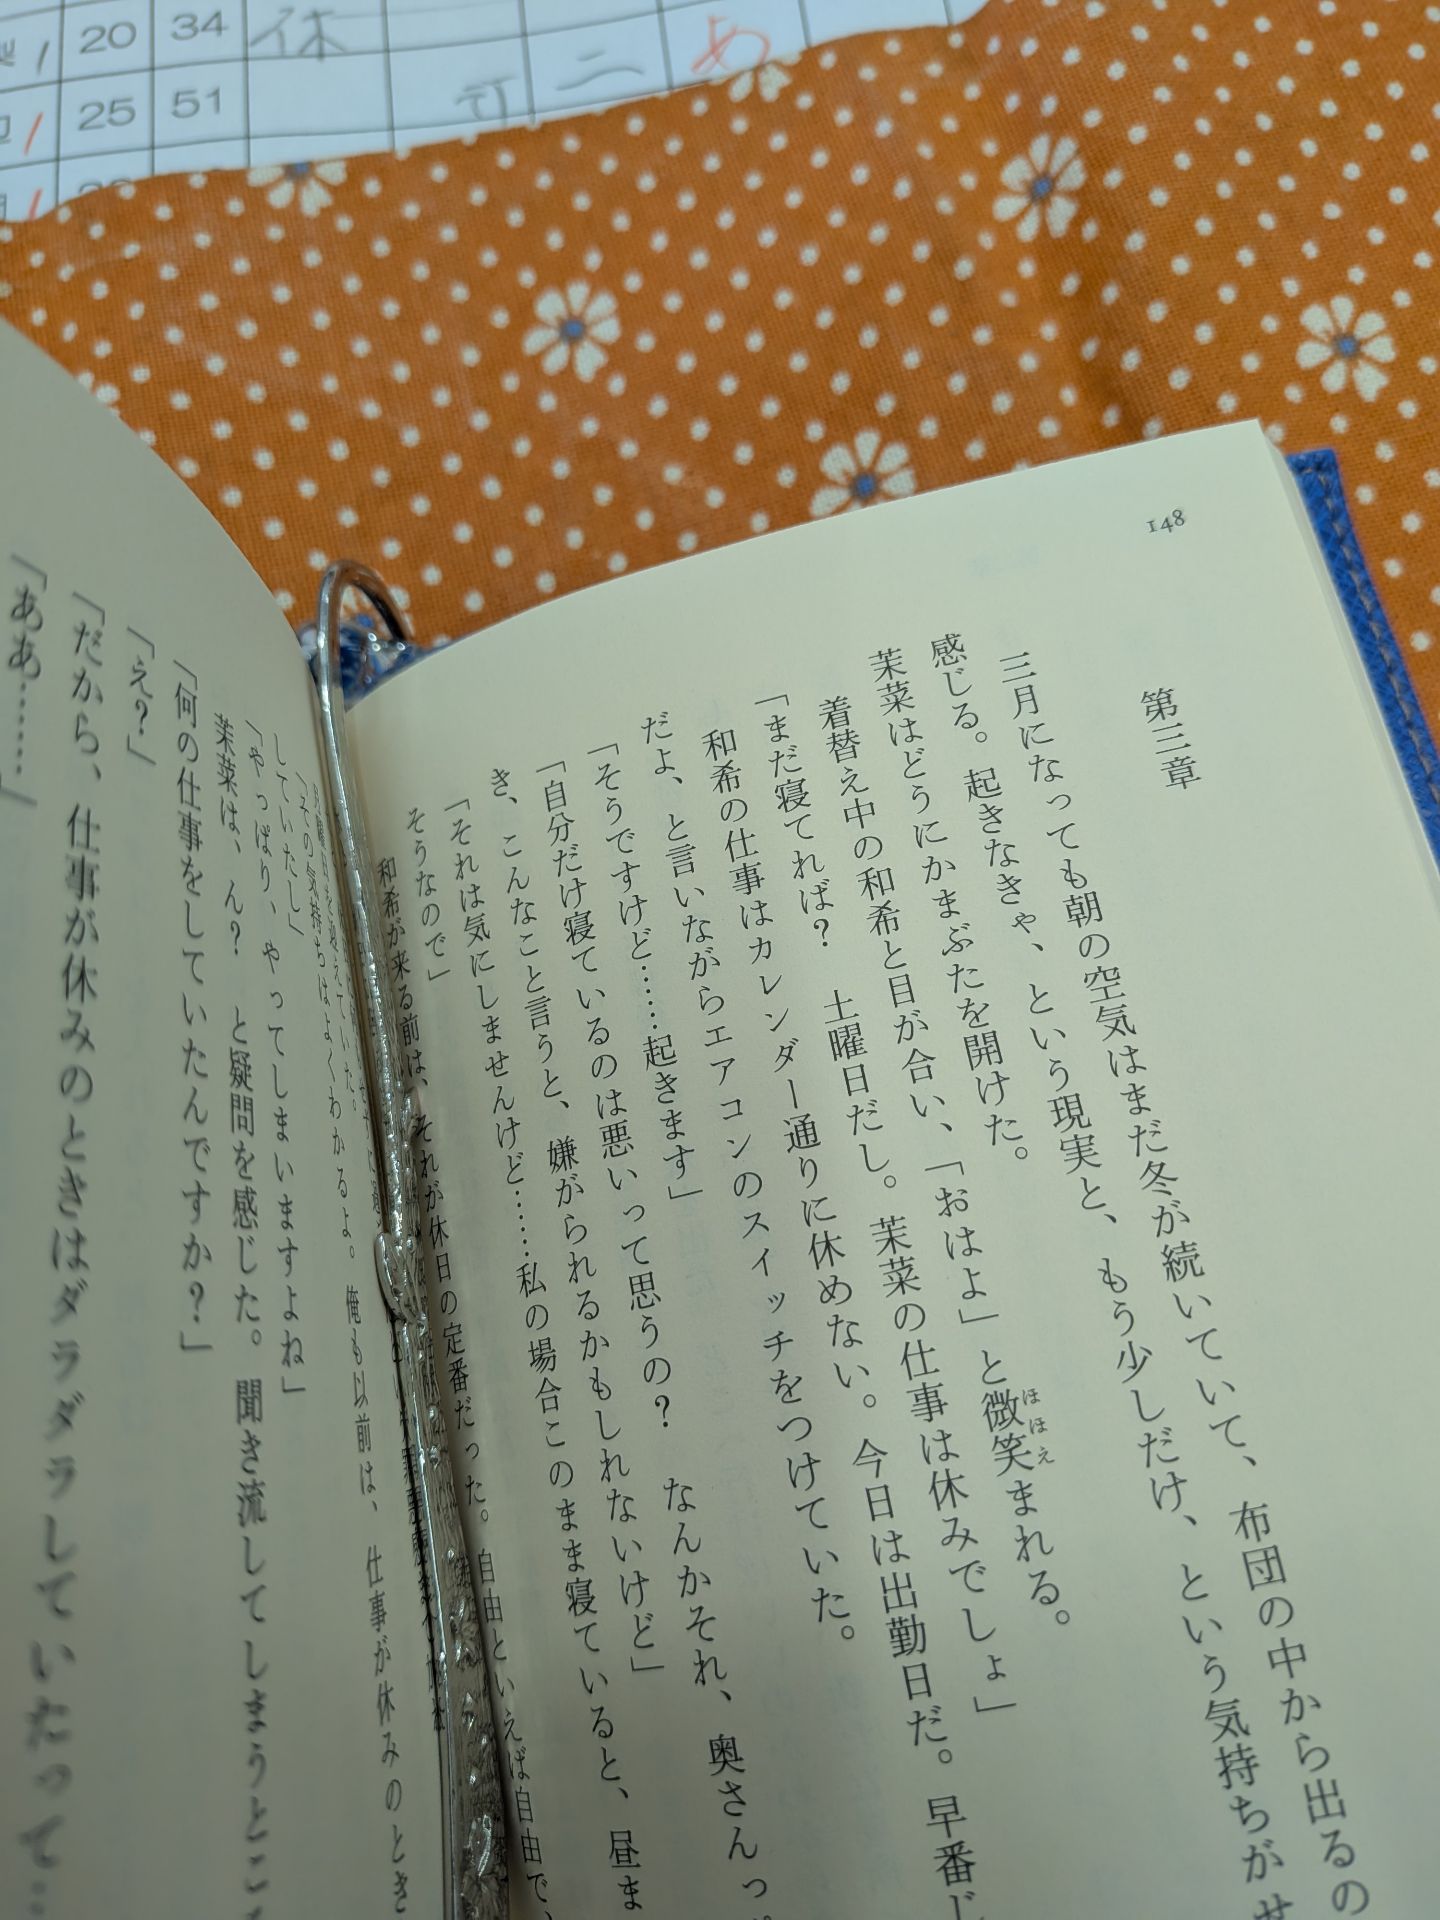 20 34 休
25 51
あ
148
第三章
三月になっても朝の空気はまだ冬が続いていて、布団の中から出るの
感じる。起きなきゃ、という現実と、もう少しだけ、という気持ちがせ
茉菜はどうにかまぶたを開けた。
着替え中の和希と目が合い、「おはよ」と微笑まれる。
ほほえ
「まだ寝てれば? 土曜日だし。茉菜の仕事は休みでしょ」
和希の仕事はカレンダー通りに休めない。今日は出勤日だ。早番じ
だよ、と言いながらエアコンのスイッチをつけていた。
「そうですけど……起きます」
「自分だけ寝ているのは悪いって思うの? なんかそれ、奥さんっ
き、こんなこと言うと、嫌がられるかもしれないけど」
「それは気にしませんけど……私の場合このまま寝ていると、昼ま
そうなので」
和希が来る前は、それが休日の定番だった。自由といえば自由で、
「その気持ちはよくわかるよ。俺も以前は、仕事が休みのとき
していたし」
「やっぱり、やってしまいますよね」
茉菜は、ん? と疑問を感じた。聞き流してしまうとこ
「何の仕事をしていたんですか?」
「え?」
「だから、仕事が休みのときはダラダラしていたって…
「ああ……」